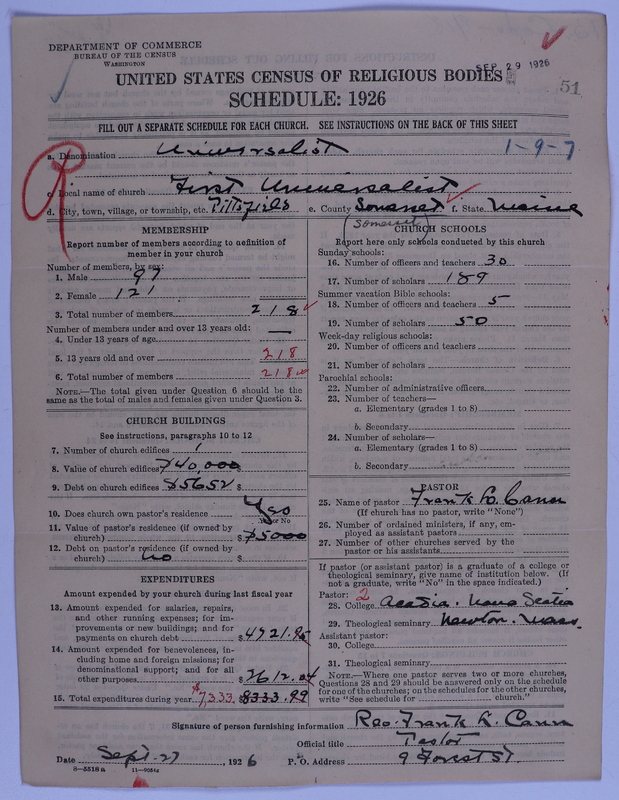 DEPARTMENT OF COMMERCE
BUREAU OF THE CENSUS
WASHINGTON
SEP 29 1926
51
UNITED STATES CENSUS OF RELIGIOUS BODIES
SCHEDULE: 1926
FILL OUT A SEPARATE SCHEDULE FOR EACH CHURCH. SEE INSTRUCTIONS ON THE BACK OF THIS SHEET
a. Denomination Universalist 1-9-7
c. Local name of church First Universalist
d. City, town, village, or township, etc. Pittsfield e. County Somerset f. State Maine
Somerset
MEMBERSHIP
Report number of members according to definition of
member in your church
Number of members, by sex:
1. Male 97
2. Female 121
3. Total number of members 218
Number of members under and over 13 years old:
4. Under 13 years of age
5. 13 years old and over 218
6. Total number of members 218
NOTE.—The total given under Question 6 should be the
same as the total of males and females given under Question 3.
CHURCH BUILDINGS
See instructions, paragraphs 10 to 12
7. Number of church edifices 1
8. Value of church edifices $40,000
9. Debt on church edifices $5652 $
10. Does church own pastor's residence Yes
Yes or No
11. Value of pastor's residence (if owned by
church) $ $5000
12. Debt on pastor's residence (if owned by
church) no $
EXPENDITURES
Amount expended by your church during last fiscal year
13. Amount expended for salaries, repairs,
and other running expenses; for im-
provements or new buildings; and for
payments on church debt $ 4721.95
14. Amount expended for benevolences, in-
cluding home and foreign missions; for
denominational support; and for all
other purposes $ 2612.04
15. Total expenditures during year $7333. 8333.99
CHURCH SCHOOLS
Report here only schools conducted by this church
Sunday schools:
16. Number of officers and teachers 30
17. Number of scholars 189
Summer vacation Bible schools:
18. Number of officers and teachers 5
19. Number of scholars 50
Week-day religious schools:
20. Number of officers and teachers
21. Number of scholars
Parochial schools:
22. Number of administrative officers
23. Number of teachers—
a. Elementary (grades 1 to 8)
b. Secondary
24. Number of scholars—
a. Elementary (grades 1 to 8)
b. Secondary
PASTOR
25. Name of pastor Frank
(If church has no pastor, write "None")
26. Number of ordained ministers, if any, em-
ployed as assistant pastors
27. Number of other churches served by the
pastor or his assistants
If pastor (or assistant pastor) is a graduate of a college or
theological seminary, give name of institution below. (If
not a graduate, write "No" in the space indicated.)
Pastor: 2
28. College Acadia. Nova Scotia
29. Theological seminary Newton. Mass.
Assistant pastor:
30. College
31. Theological seminary
NOTE.—Where one pastor serves two or more churches,
Questions 28 and 29 should be answered only on the schedule
for one of the churches; on the schedules for the other churches,
write "See schedule for church."
Signature of person furnishing information Rev. Frank
Official title Pastor
Date Sept. 27, 1926 P. O. Address 9 Forest St.
8—5518a 11—9054a